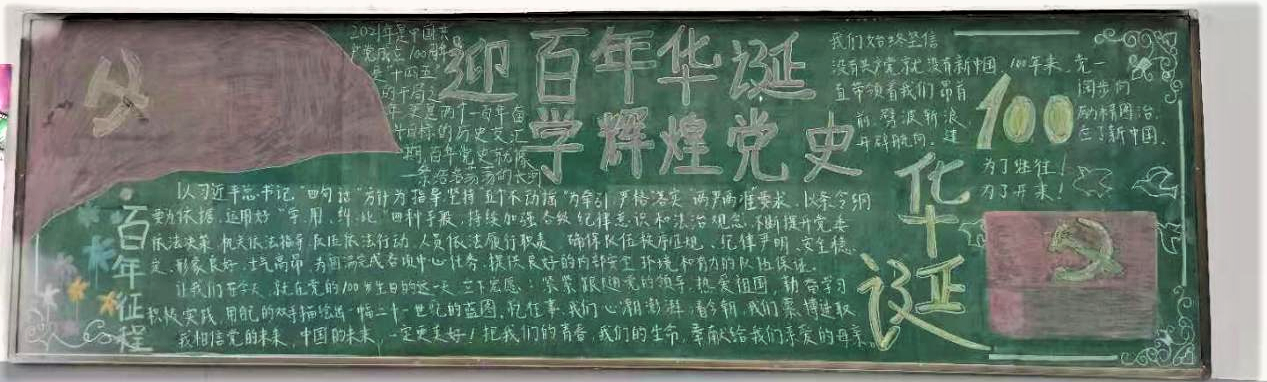 2021年是中国共
产党成立100周年
是十四五
的开局之
年更是两个一百年奋
斗目标的历史交汇
期,百年党史就像
一条浩浩荡荡的长河
迎百年华诞
学辉煌党史
我们始终坚信
没有共产党就没有新中国,100年来,党一
直带领着我们 昂首 阔步向
前,劈波斩浪、 励精图治
开辟航向。建 立了新中国.
100
为了继往!
为了开来!
华诞
百年征程
以习近平总书记"四句话"方针为指导坚持"五个不动摇"为牵引,严格落实"两严两准"要求,以条令纲
要为依据,运用好"学、用、纠、比"四种手段,持续加强各级纪律意识和法治观念,不断提升党委
依法决策、机关依法指导、队伍依法行动、人员依法履行职责,确保队伍秩序正规、纪律严明、安全稳
定、形象良好、士气高昂,为圆满完成各项中心任务,提供良好的内部安全环境和有力的队伍保证。
让我们在今天,就在党的100岁生日的这一天,立下宏愿:紧紧跟随党的领导,热爱祖国,勤奋学习
积极实践,用我们的双手描绘出一幅二十一世纪的蓝图,忆往事,我们心潮澎湃,看今朝,我们拼搏进取
我相信党的未来,中国的未来,一定更美好!把我们的青春,我们的生命,奉献给我们亲爱的母亲。